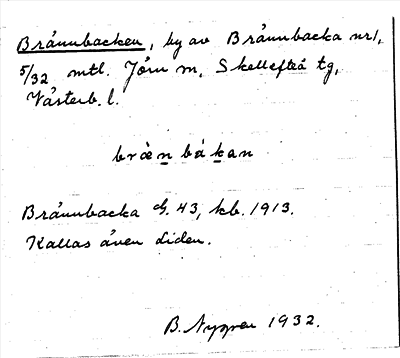 Brånnbacken, by av Brånnbacka nr1,
5/32 mtl. Jörn sn, Skellefteå tg,
Västerb. l.
bræ̀n bàkan
Brånnbacka G. 43, kb. 1913.
Kallas även Liden.
B. Nygren 1932.